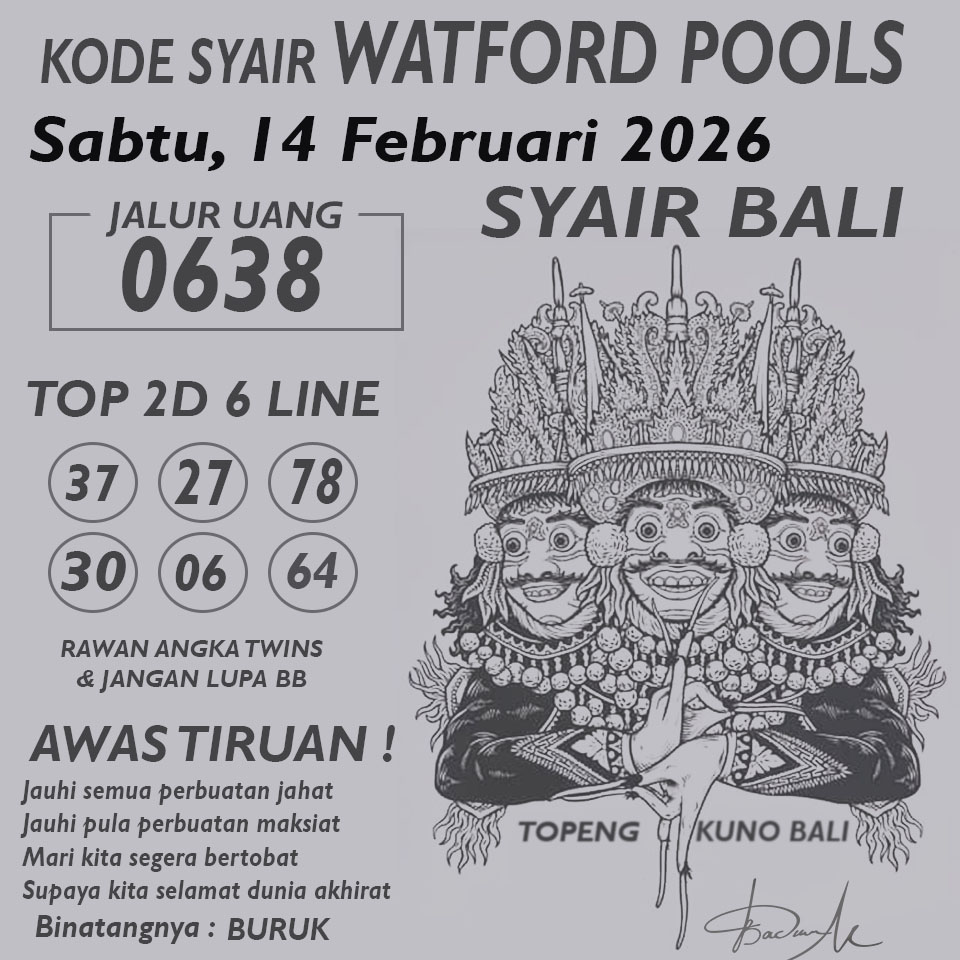 KODE SYAIR WATFORD POOLS
Sabtu, 14 Februari 2026
SYAIR BALI
JALUR UANG
0638
TOP 2D 6 LINE
37 27 78
30 06 64
RAWAN ANGKA TWINS
& JANGAN LUPA BB
AWAS TIRUAN !
Jauhi semua perbuatan jahat
Jauhi pula perbuatan maksiat
Mari kita segera bertobat
Supaya kita selamat dunia akhirat
Binatangnya : BURUK
TOPENG KUNO BALI